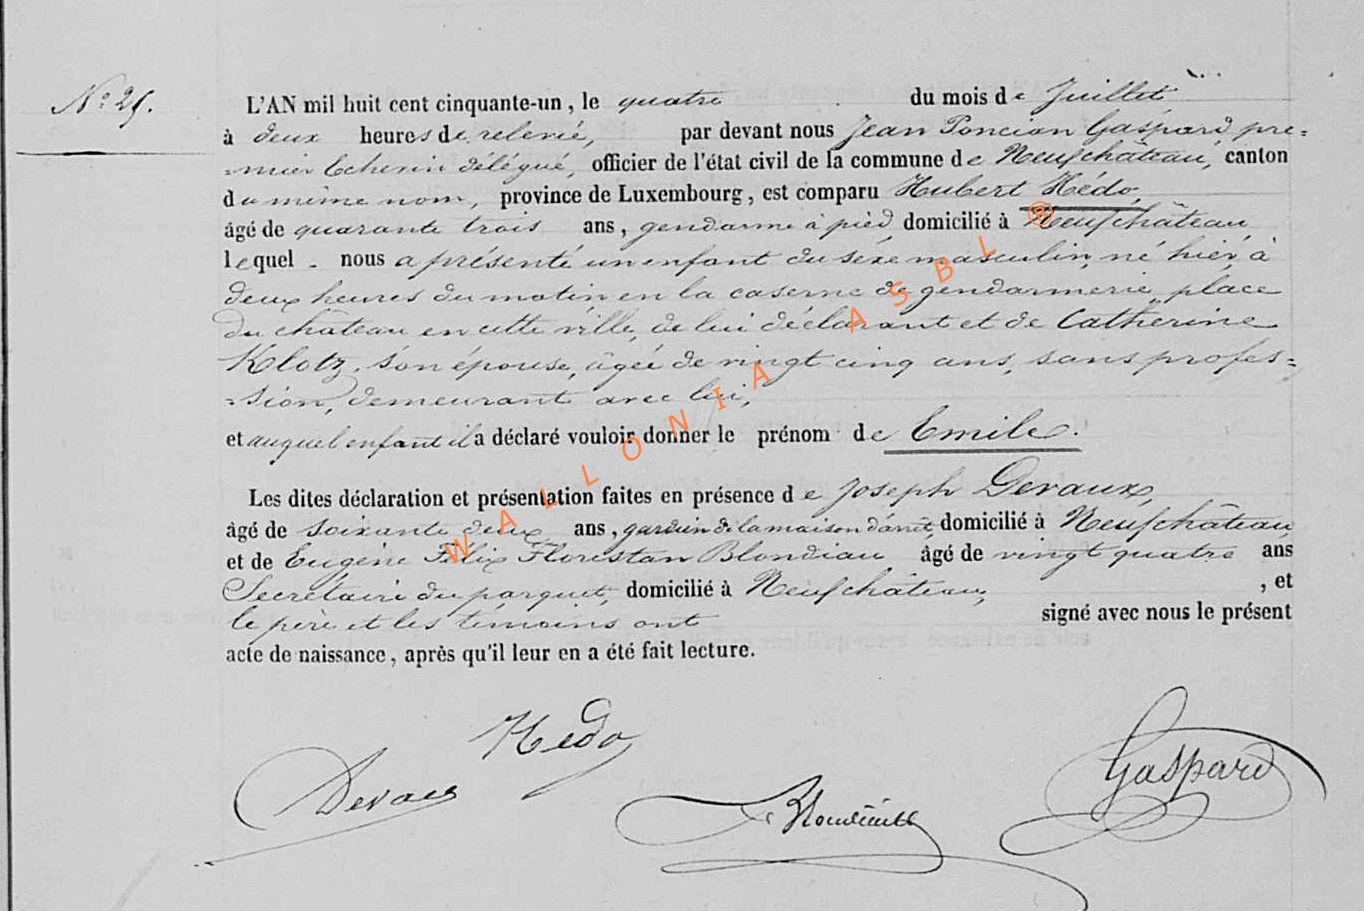 N.º 25.
L'AN mil huit cent cinquante-un, le quatre du mois de Juillet
à deux heures de relevée, par devant nous Jean Poncian Gaspard pre=
=mier Echevin délégué, officier de l'état civil de la commune de Neufchâteau, canton
du même nom, province de Luxembourg, est comparu Hubert Hédo
âgé de quarante trois ans, gendarme à pied domicilié à Neufchâteau
lequel nous a présenté un enfant du sexe masculin, né hier, à
deux heures du matin en la caserne de gendarmerie place
du château en cette ville, de lui déclarant et de Catherine
Klotz, son épouse, âgée de vingt cinq ans, sans profes=
=sion, demeurant avec lui,
et auquel enfant il a déclaré vouloir donner le prénom de Emile.
Les dites déclaration et présentation faites en présence de Joseph Devaux,
âgé de soixante deux ans, gardien de la maison d'arrêt, domicilié à Neufchâteau,
et de Eugène Félix Florestan Blondiau âgé de vingt quatre ans
Secrétaire du parquet, domicilié à Neufchâteau, , et
le père et les témoins ont signé avec nous le présent
acte de naissance, après qu'il leur en a été fait lecture.
Hedo
Devaux
Gaspard
WALLONIA ASBL ®